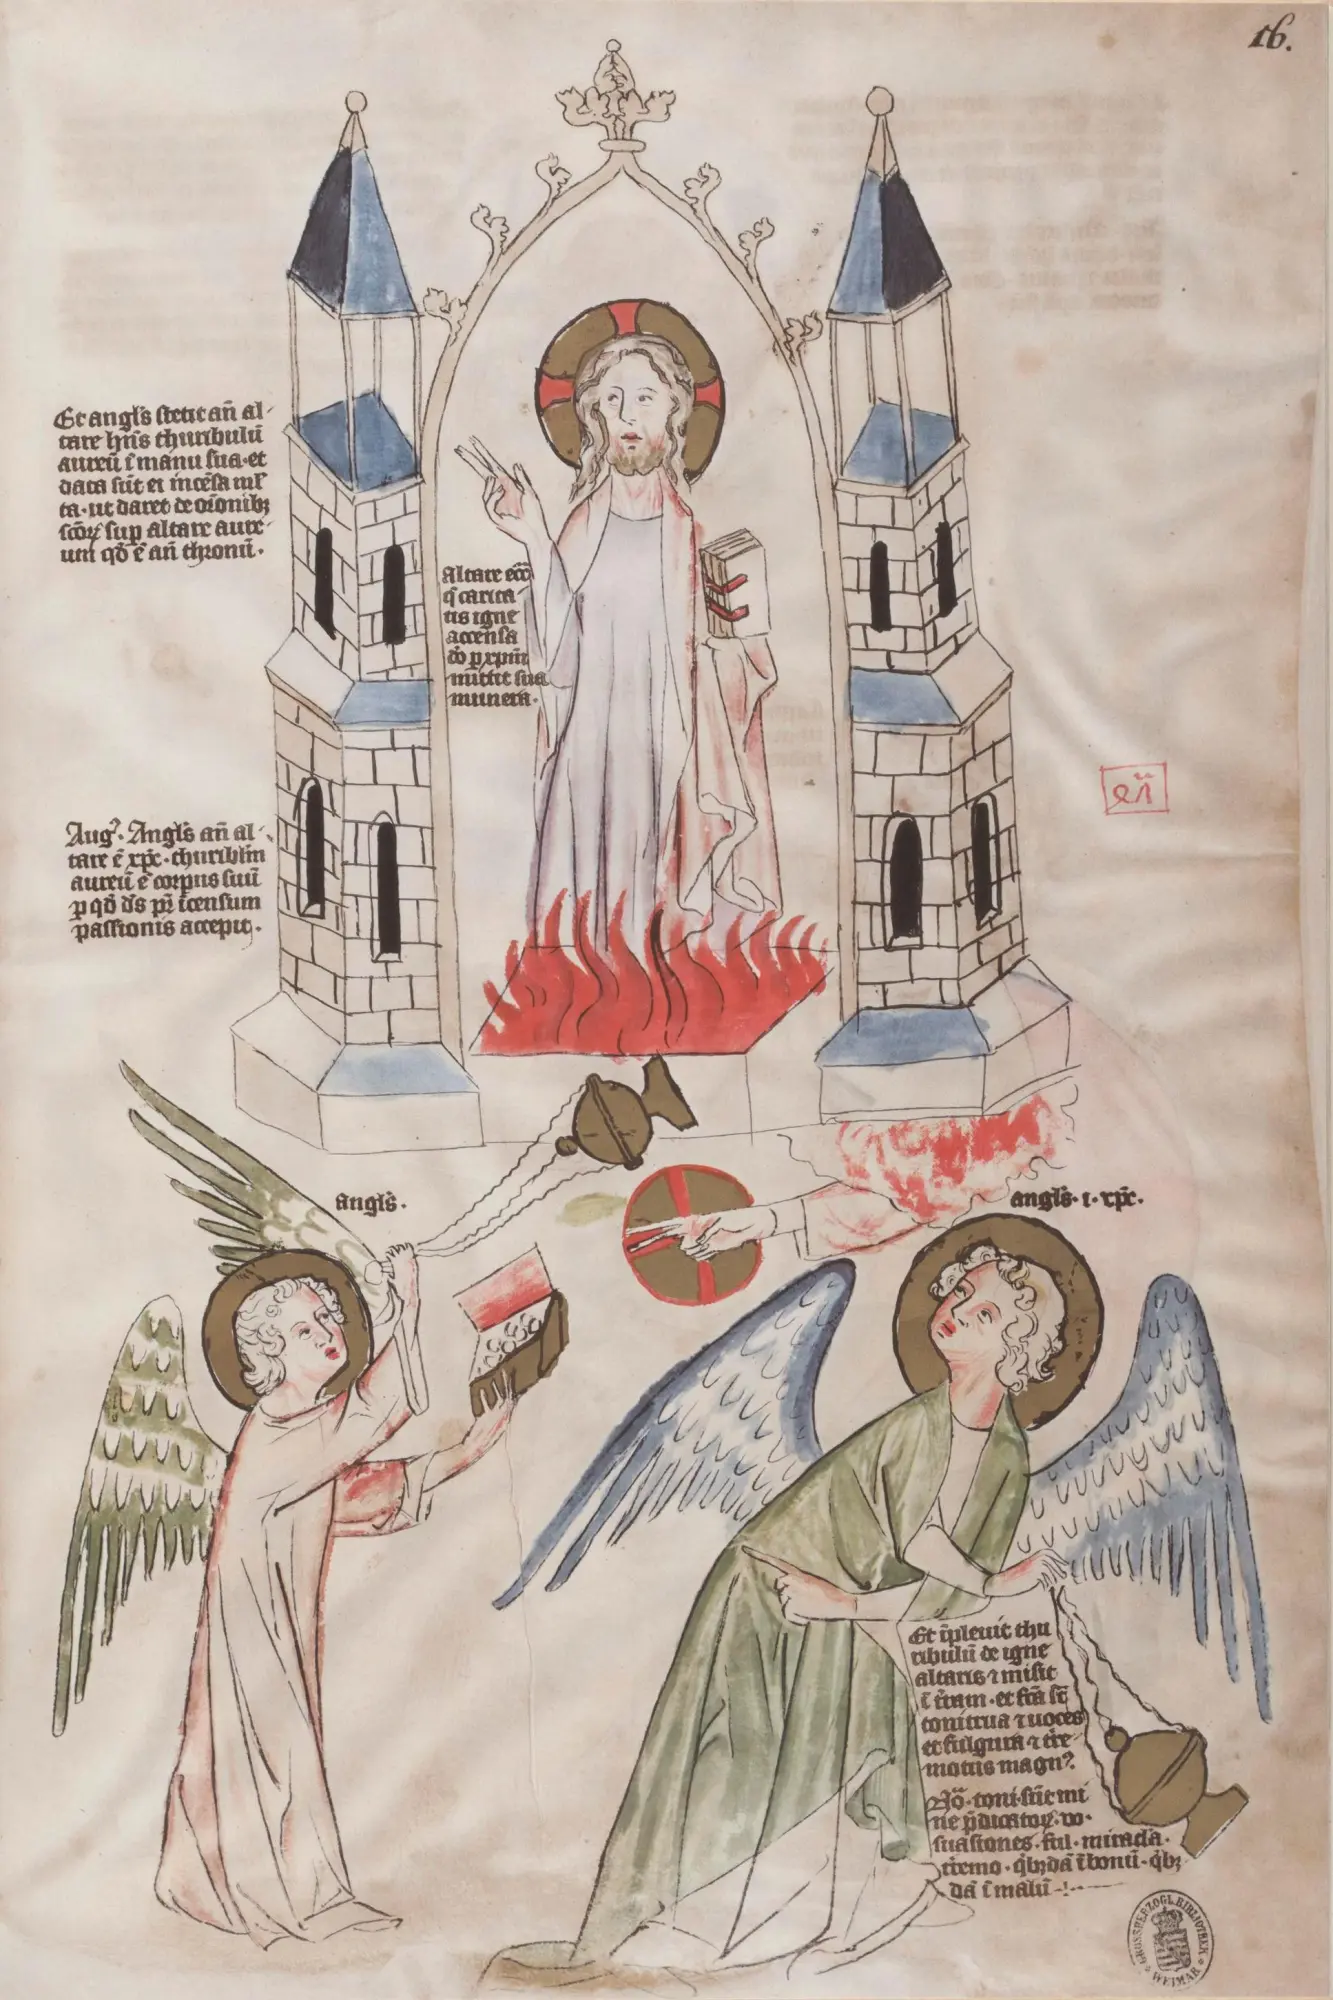 16.
Et angl's stetit an̄ al-
tare hn̄s thuribulū
aureū ī manu sua · et
data sūt ei incēsa ml'-
ta · ut daret de or̄onibꝫ
sc̄oꝝ sup altare aure-
um qd̄ ē an̄ thronū ·
Altare
caritatis igne
accensa
mittit sua
munera ·
Aug᾽ · Angl's an̄ al-
tare ē xp̄c · thuriblm̄
aureū ē corpus suū
p qd̄ d's pr̄ īcensum
passionis accepit ·
angl's ·
angl's · i · xp̄c ·
Et īpleuit thu
ribulū de igne
altaris ⁊ misit
ī t'ram · et fc̄a st̄
tonitrua ⁊ uoces
et fulgura ⁊ t're-
motus magn᾽ ·
toni · sūt mi
ne p̄dicatoꝝ ·
suasiones · ful · miracl'a ·
t'remo · qͥbꝫdā ī bonū · qͥbꝫ
dā ī malū
GROSSHERZOGL. BIBLIOTHEK
WEIMAR